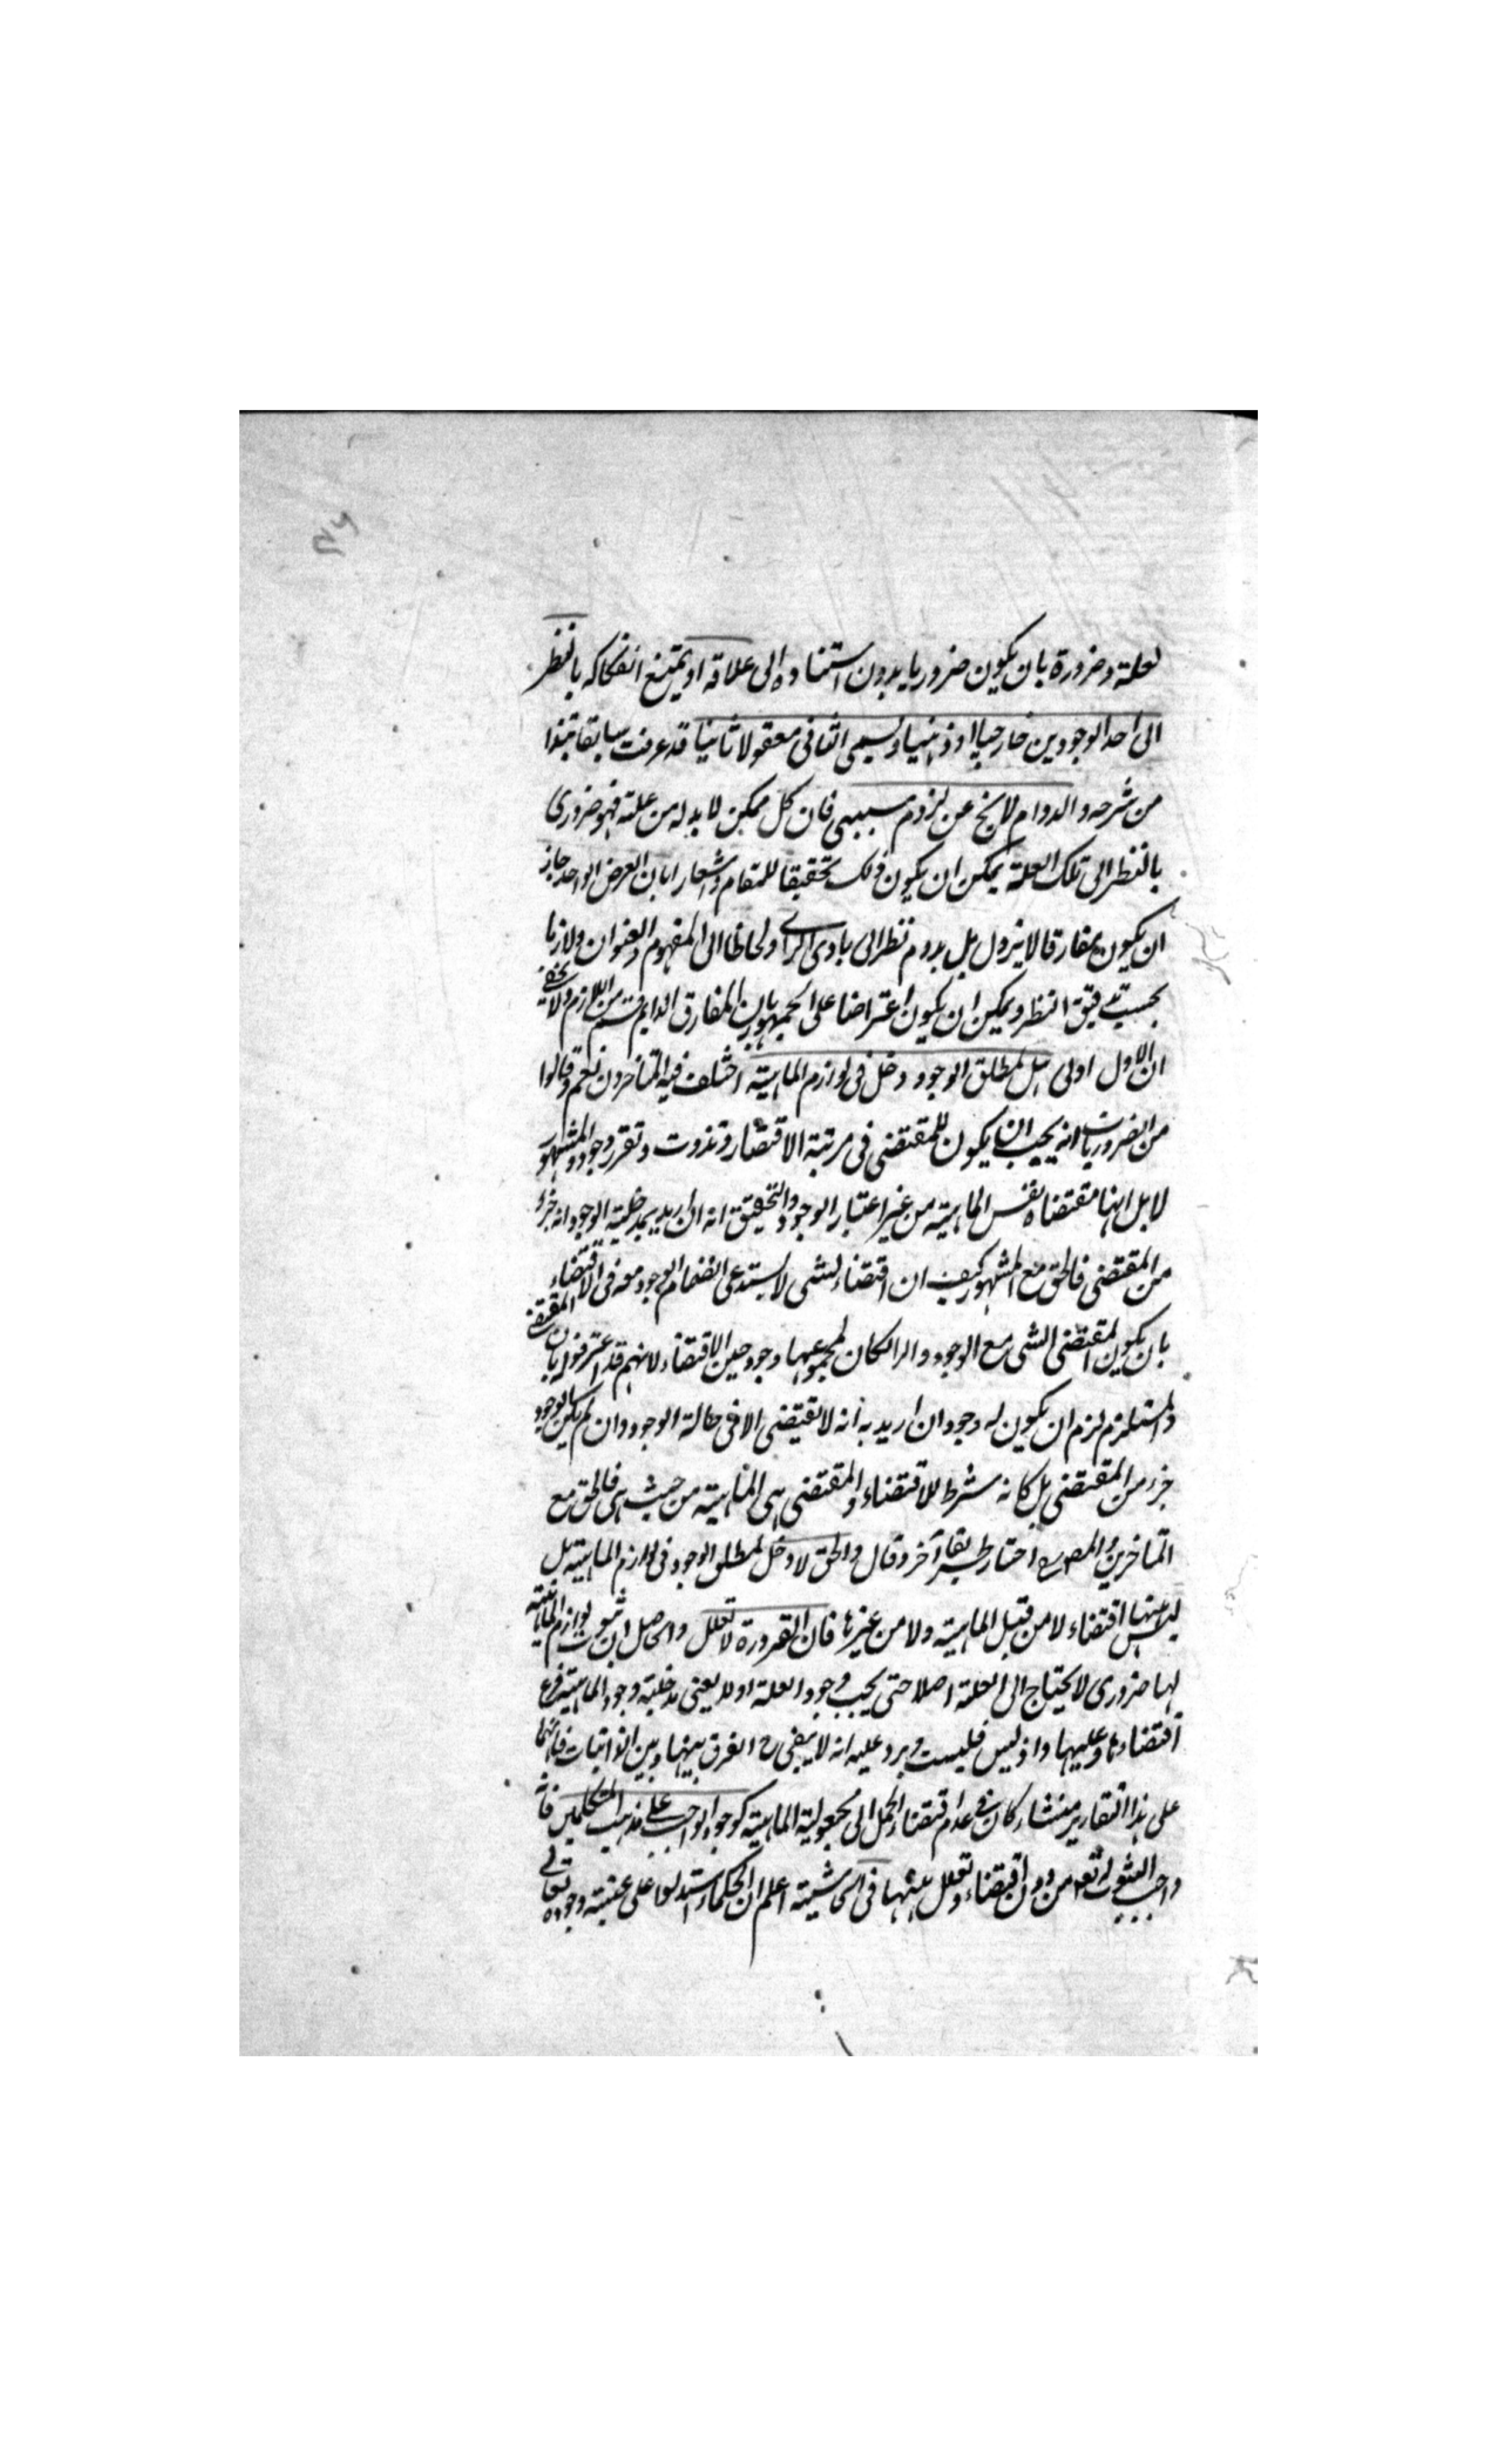 لعلة وضرورة بان يكون ضروريا بدون استناده الى علاقة او يمتنع انفكاكه بالنظر
الى احد الوجودين خارجيا او ذهنيا ويسمى الثانى معقولا ثانيا قد عرفت سابقا نبذا
من شرحه والدوام لا يخ عن لزوم سببى فان كل ممكن لا بد له من علة فهو ضرورى
بالنظر الى تلك العلة يمكن ان يكون ذلك تحقيقا للمقام واشعارا بان العرض الواحد جاز
ان يكون مفارقا لا يزول بل يدوم نظرا الى بادى الراى ولحاظا الى المفهوم والعنوان ولازما
بحسب تدقيق النظر ويمكن ان يكون اعتراضا على الجمهور بان المفارق الدايم قسم من اللازم ولا يخفى
ان الاول اولى هل لمطلق الوجود دخل فى لوازم الماهية اختلف فيه المتاخرون نعم وقالوا
من الضروريات انه يجب ان يكون للمقتضى فى مرتبة الاقتضاء تذوت وتقرر وجود والمشهور
لا بل انها مقتضاة نفس الماهية من غير اعتبار الوجود والتحقيق انه ان اريد بمدخلية الوجود انه جزء
من المقتضى فالحق مع المشهور كيف ان اقتضاء لشى لا يستدعى انضمام الوجود معه فى الاقتضاء
بان يكون المقتضى الشى مع الوجود والا لكان لمجموعهما وجود حين الاقتضاء لانهم قد اعترفوا بان المقتضى
والمستلزم لزم ان يكون له وجود وان اريد به انه لا يقتضى الا فى حالة الوجود وان لم يكن الوجود
جزء من المقتضى بل كانه شرط للاقتضاء والمقتضى هى الماهية من حيث هى فالحق مع
المتاخرين والمصـ اختار طريقا آخر وقال والحق لا دخل لمطلق الوجود فى لوازم الماهية بل
ليس فيها اقتضاء لا من قبل الماهية ولا من غيرها فان الضرورة لا تعلل والحاصل ان ثبوت لوازم الماهية
لها ضرورى لا يحتاج الى العلة اصلا حتى يجب وجود العلة اولا يعنى مدخلية وجود الماهية فرع
اقتضاءها وعليها واذ ليس فليست ويرد عليه انه لا يبقى ح الفرق بينها وبين الذاتيات فانها
على هذا التقارير كان فى عدم اقتضاء الحمل الى مجعولية الماهية كوجود الواجب على مذهب المتكلمين فانه
واجب الثبوت له تعـ من دون اقتضاء وتعلل منها فى الحاشية اعلم ان الحكماء استدلوا على عينية وجوده تعالى